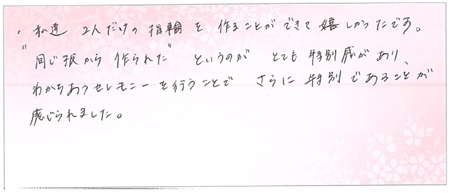 ・私達 2人だけの指輪を作ることができて嬉しかったです。
"同じ板から作られた" というのが とても特別感があり、
わかちあうセレモニーを行うことで さらに特別であることが
感じられました。